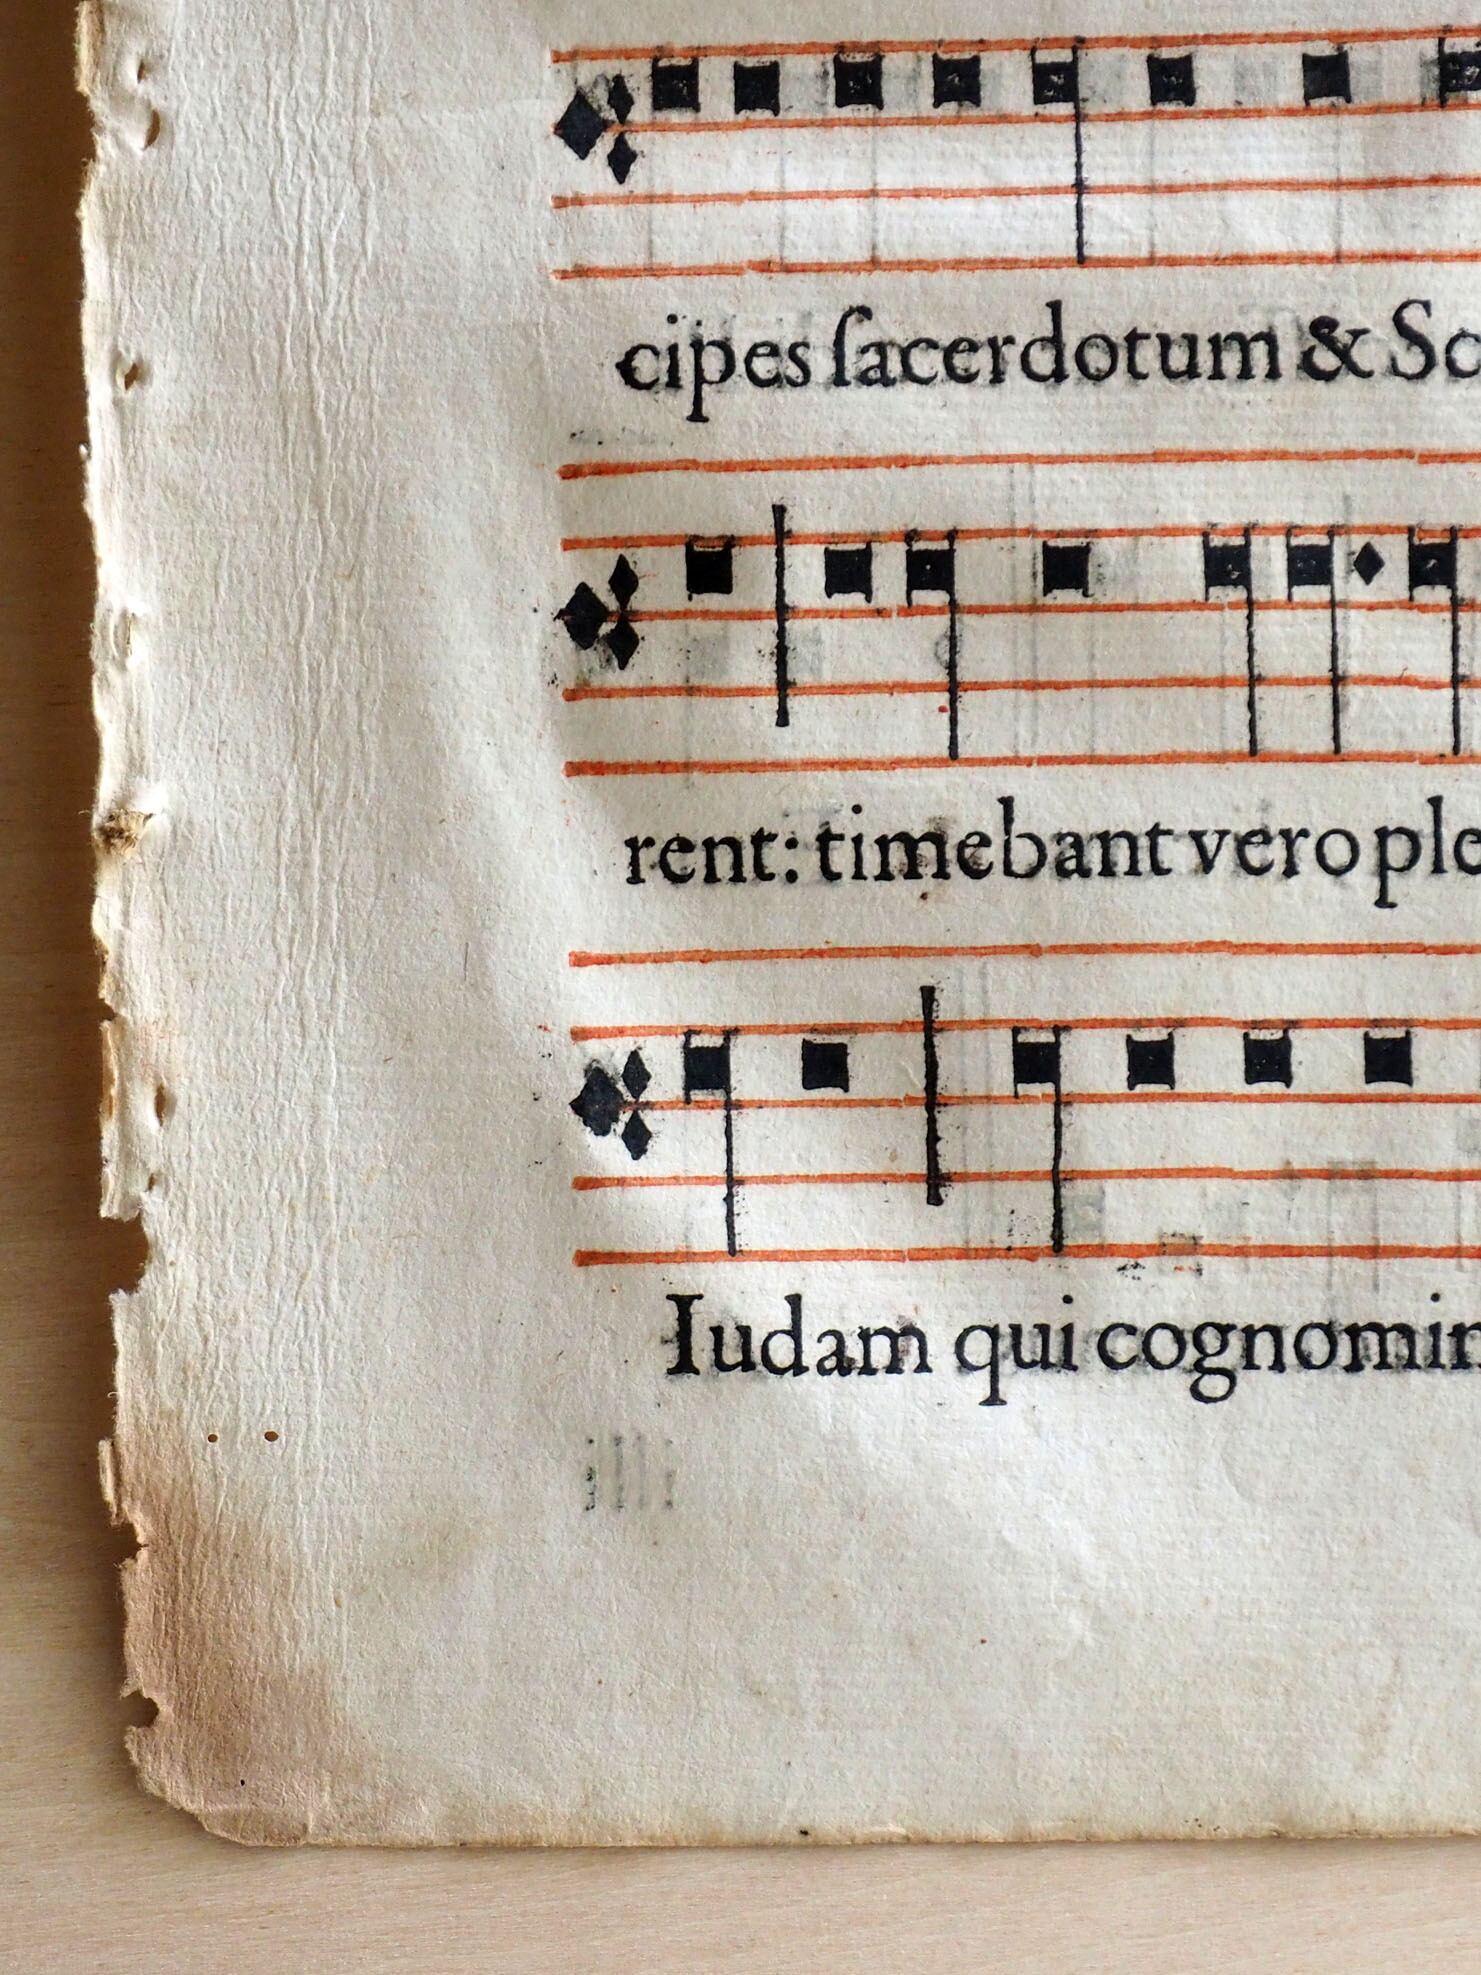 cipes ſacerdotum & Sc
rent: timebant vero ple
Iudam qui cognomin